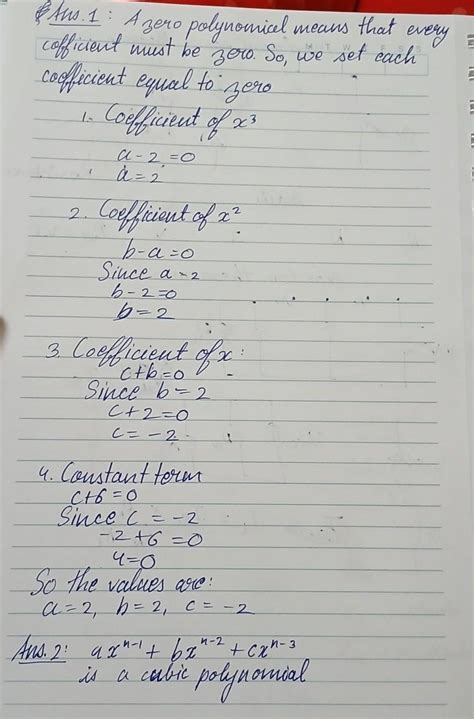 Ans.1: A zero polynomial means that every
cofficient must be zero. So, we set each
coefficient equal to zero
1. Coefficient of x³
a-2=0
a=2
2. Coefficient of x²
b-a=0
Since a-2
b-2=0
b=2
3. Coefficient of x:
c+b=0
Since b=2
c+2=0
c=-2
4. Constant term
c+6=0
Since c=-2
-2+6=0
4=0
So the values are:
a=2, b=2, c=-2
Ans.2: ax^{n-1} + bx^{n-2} + cx^{n-3}
is a cubic polynomial